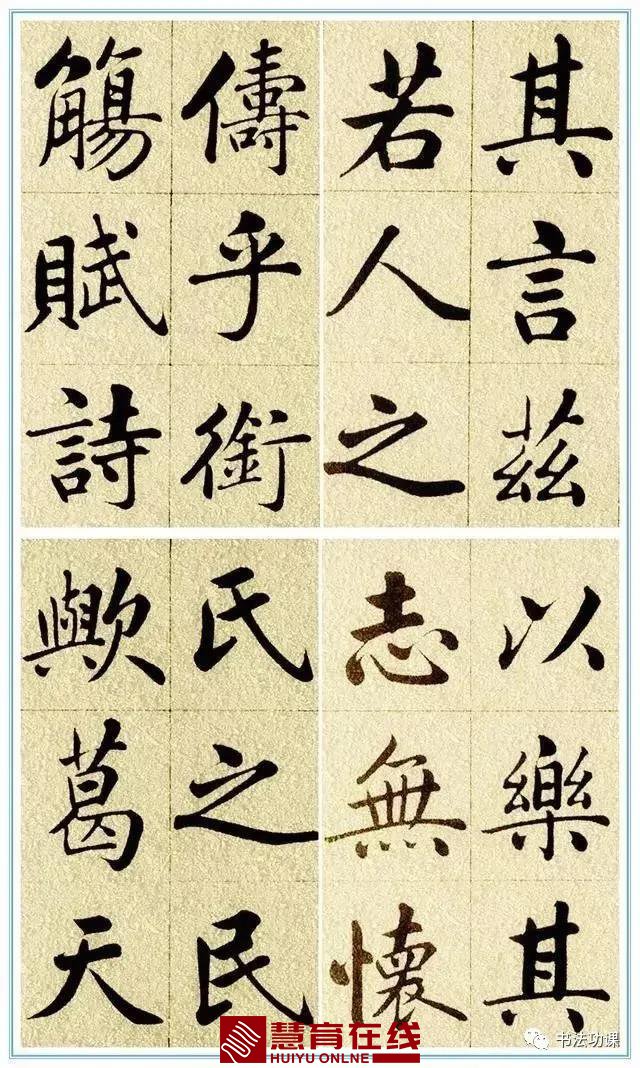 其言茲
若人之
儔乎銜
觴賦詩
以樂其
志無懷
氏之民
歟葛天
慧育在线
HUIYU ONLNE
书法功课